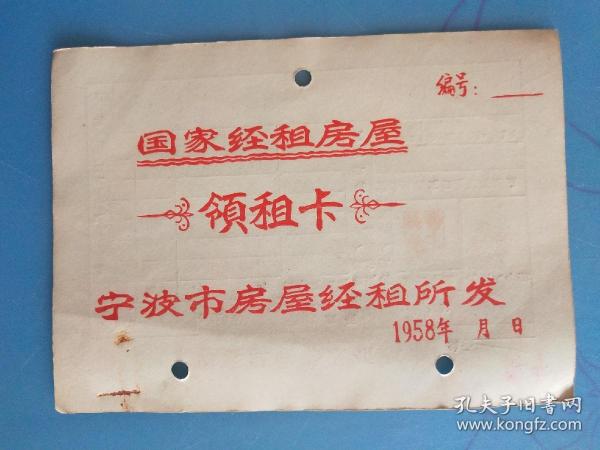 编号：
国家经租房屋
領租卡
宁波市房屋经租所发
1958年 月 日
孔夫子旧书网
www.kongfz.com